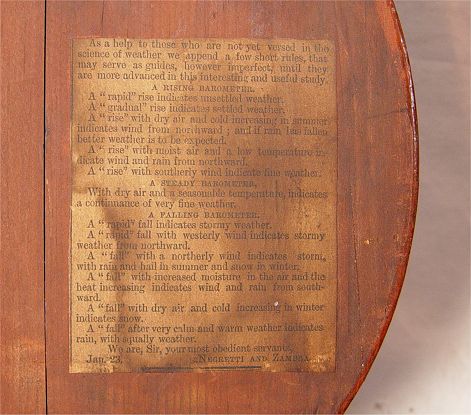 As a help to those who are not yet versed in the
science of weather we append a few short rules, that
may serve as guides, however imperfect, until they
are more advanced in this interesting and useful study.
A RISING BAROMETER.
A "rapid" rise indicates unsettled weather.
A "gradual" rise indicates settled weather.
A "rise" with dry air and cold increasing in summer
indicates wind from northward; and if rain has fallen
better weather is to be expected.
A "rise" with moist air and a low temperature in-
dicate wind and rain from northward.
A "rise" with southerly wind indicate fine weather.
A STEADY BAROMETER,
With dry air and a seasonable temperature, indicates
a continuance of very fine weather.
A FALLING BAROMETER.
A "rapid" fall indicates stormy weather.
A "rapid" fall with westerly wind indicates stormy
weather from northward.
A "fall" with a northerly wind indicates storm,
with rain and hail in summer and snow in winter.
A "fall" with increased moisture in the air and the
heat increasing indicates wind and rain from south-
ward.
A "fall" with dry air and cold increasing in winter
indicates snow.
A "fall" after very calm and warm weather indicates
rain, with squally weather.
We are, Sir, your most obedient servants,
Jan. 23. NEGRETTI AND ZAMBRA.